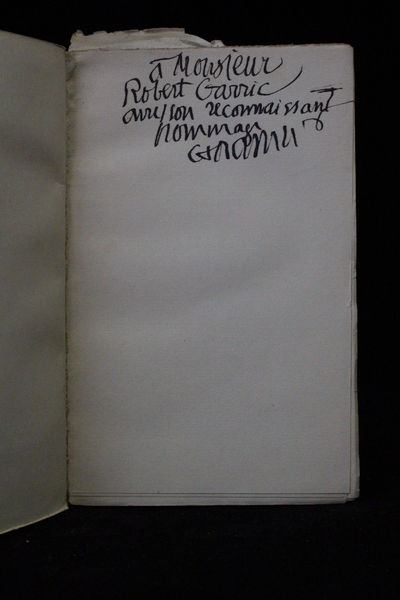 à Monsieur
Robert Garric
avec son reconnaissant
hommage